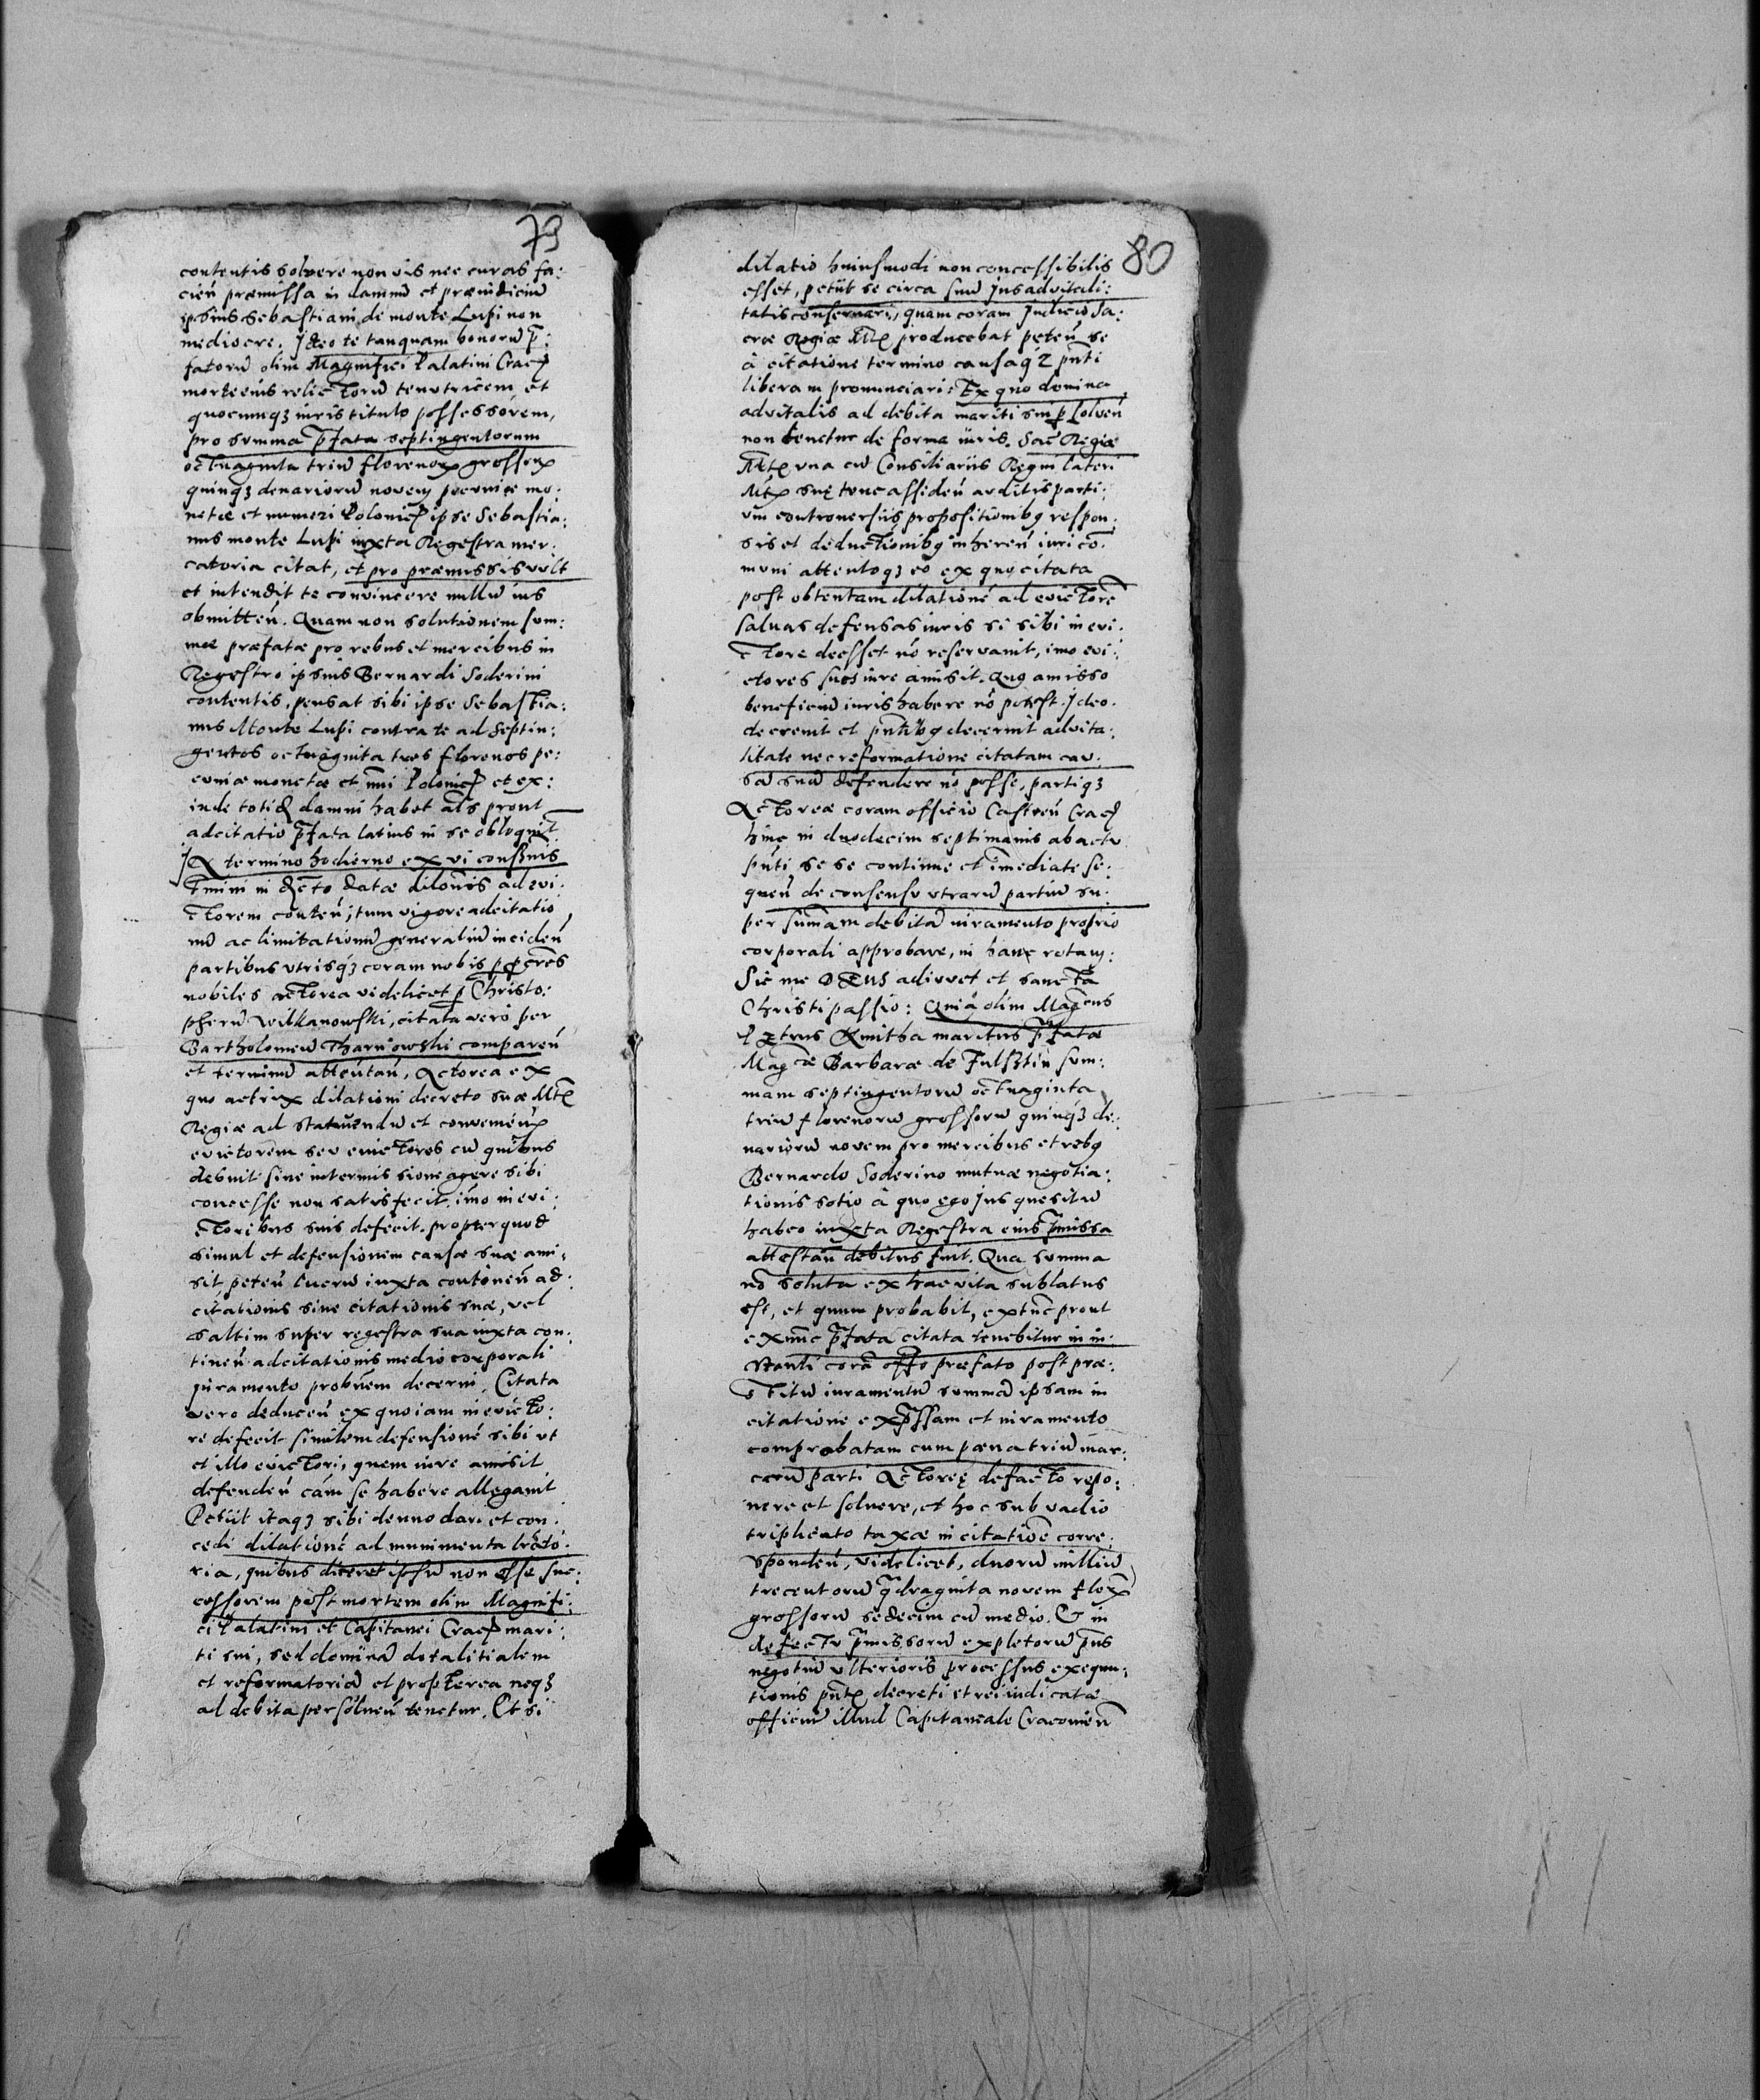 79
contentis solvere non vis nec curas fa:
cień præmissa in damnū et præiudiciū
ipsius Sebastiani de monte Lupi non
mediocre. Ideo te tanquam bonorū p̄:
fatorū olim Magnifici Palatini Crac̄
morte eius relictorū tenutricem et
quocunqꝫ iuris titulo possessorem,
pro summa p̄fata septingentorum
octuaginta triū florenoꝝ grossoꝝ
quinqꝫ denariorū novem pecuniæ mo:
netæ et numeri Polonic̄ ipse Sebastia:
nus monte Lupi iuxta Regestra mer:
catoria citat, et pro præmissis vult
et intendit te convincere nullū ius
obmitteń. Quam non solutionem sum:
mæ præfatæ pro rebus et mercibus in
Regestro ipsius Bernardi Soderini
contentis, pensat sibi ipse Sebastia:
nus Monte Lupi contra te ad Septin:
gentos octuaginta tres florenos pe:
cuniæ monetæ et nn̄i Polonic̄ et ex:
inde totid damni habet al̄s prout
adcitatio p̄fata latius in se obloquit̄
In termino hodierno ex vi confinis
t̄mini in dc̄to datæ dilōnis ad evi:
ctorem conteń, tum vigore adcitatio
nū ac limitationū generaliū incideń
partibus vtrisqꝫ coram nobis p ꝓcr̄es
nobiles actorea videlicet p Christo:
pherū Wilkanowski, citata vero per
Bartholomeū Tharnowski compareń
et terminū attentań, Actorea ex
quo actrix dilationi decreto suæ Mtꝭ
Regiæ ad statuendū et
evictorem seu evictores cū quibus
debuit sine intermissione agere sibi
concessæ non satisfecit, imo in evi:
ctoribus suis defecit. propter quod
simul et defensionem causæ suæ ami:
sit, peteń lucrū iuxta contineń ad:
citationis sine citationis suæ, vel
saltim super regestra sua iuxta con:
tineń adcitationis medio corporali
iuramento decerni. Citata
vero deduceń ex quo iam in evicto:
re defecit similem defensionē sibi vt
et illo evictori, quem iure amisit
defendeń cām se habere allegavit
Petiit itaqꝫ sibi denuo dari et con:
cedi dilationē ad munimenta
ria, quibus diceret ipsū non esse suc:
cessorem post mortem olim Magnifi:
ci Palatini et Capitanei Crac̄ mari:
ti sui, sed dominā dotalitialem
et reformatoriā et propterea neqꝫ
ad debita persolueń tenetur. Et si
80
dilatio huiusmodi non concessibilis
esset, petiit se circa suū Jus advitali:
tatis conservari, quam coram Judicio Sa:
cræ Regiæ Mtꝭ producebat peteń se
à citatione termino causaqꝫ p̄nti
liberam pronunciari: Ex quo domina
advitalis ad debita mariti sui ꝑsolueń
non tenetur de forma iuris. Sac̄ Regiæ
Mtꝭ vna cū Consiliariis Regni lateri
Mtꝭ suę tunc assideń auditis parti:
um controversiis propositionibꝫ respon:
sis et deductionibꝫ inhereń iuri cō:
muni attentoqꝫ eō ex quo citata
post obtentam dilationē ad evictorē
salvas defensas iuris si sibi in evi:
ctore deesset nō reservavit, imo evi:
ctores suos iure amisit. Quo amisso
beneficiū iuris habere nō potest. Ideo.
decrevit et p̄ntibꝫ decernit advita:
litate nec reformatione citatam cau:
sā suā defendere nō posse, partiqꝫ
Actoreæ coram officio Castreń Crac̄
hinc in duodecim septimanis ab actu
p̄nti se se continue et īmediate se:
queń de consensu vtrarū partiū su:
per sūmam debitā iuramento proprio
corporali approbare, in hanc rotam:
Sic me DEUS adiuvet et sancta
Christi passio: Quia olim Mag̅cus
Petrus Kmitha maritus p̄fatæ
Mag̅cæ Barbaræ de Fulsztin sum:
mam septingentorū octuaginta
triū florenorū grossorū quinqꝫ de:
nariorū novem pro mercibus et rebꝫ
Bernardo Soderino mutuæ negotia:
tionis sotio à quo ego Jus quesitū
habeo iuxta Regestra eius p̄missa
attestań debitus fuit. Qua summa
nō soluta ex hac vita sublatus
est, et quum probabit, extūc prout
exnūc p̄fata citata tenebitur in in:
stanti corā offo præfato post præ:
stitū iuramentū summā ipsam in
citatione exp̄ssam et iuramento
comprobatam cum pæna triū mar:
carū parti Actoreę defacto repo:
nere et solvere, et hoc sub vadio
triplicato taxæ in citatiōe corre:
spondeń, videlicet, duorū milliū
trecentorū q̄draginta novem floꝝ
grossorū sedecim cū medio. Et in
defectu p̄missorū expletorū p̄ns
negotiū vlterioris processus exequu:
tionis p̄ntꝭ decreti et rei iudicatæ
officiū illud Capitaneale Cracovień